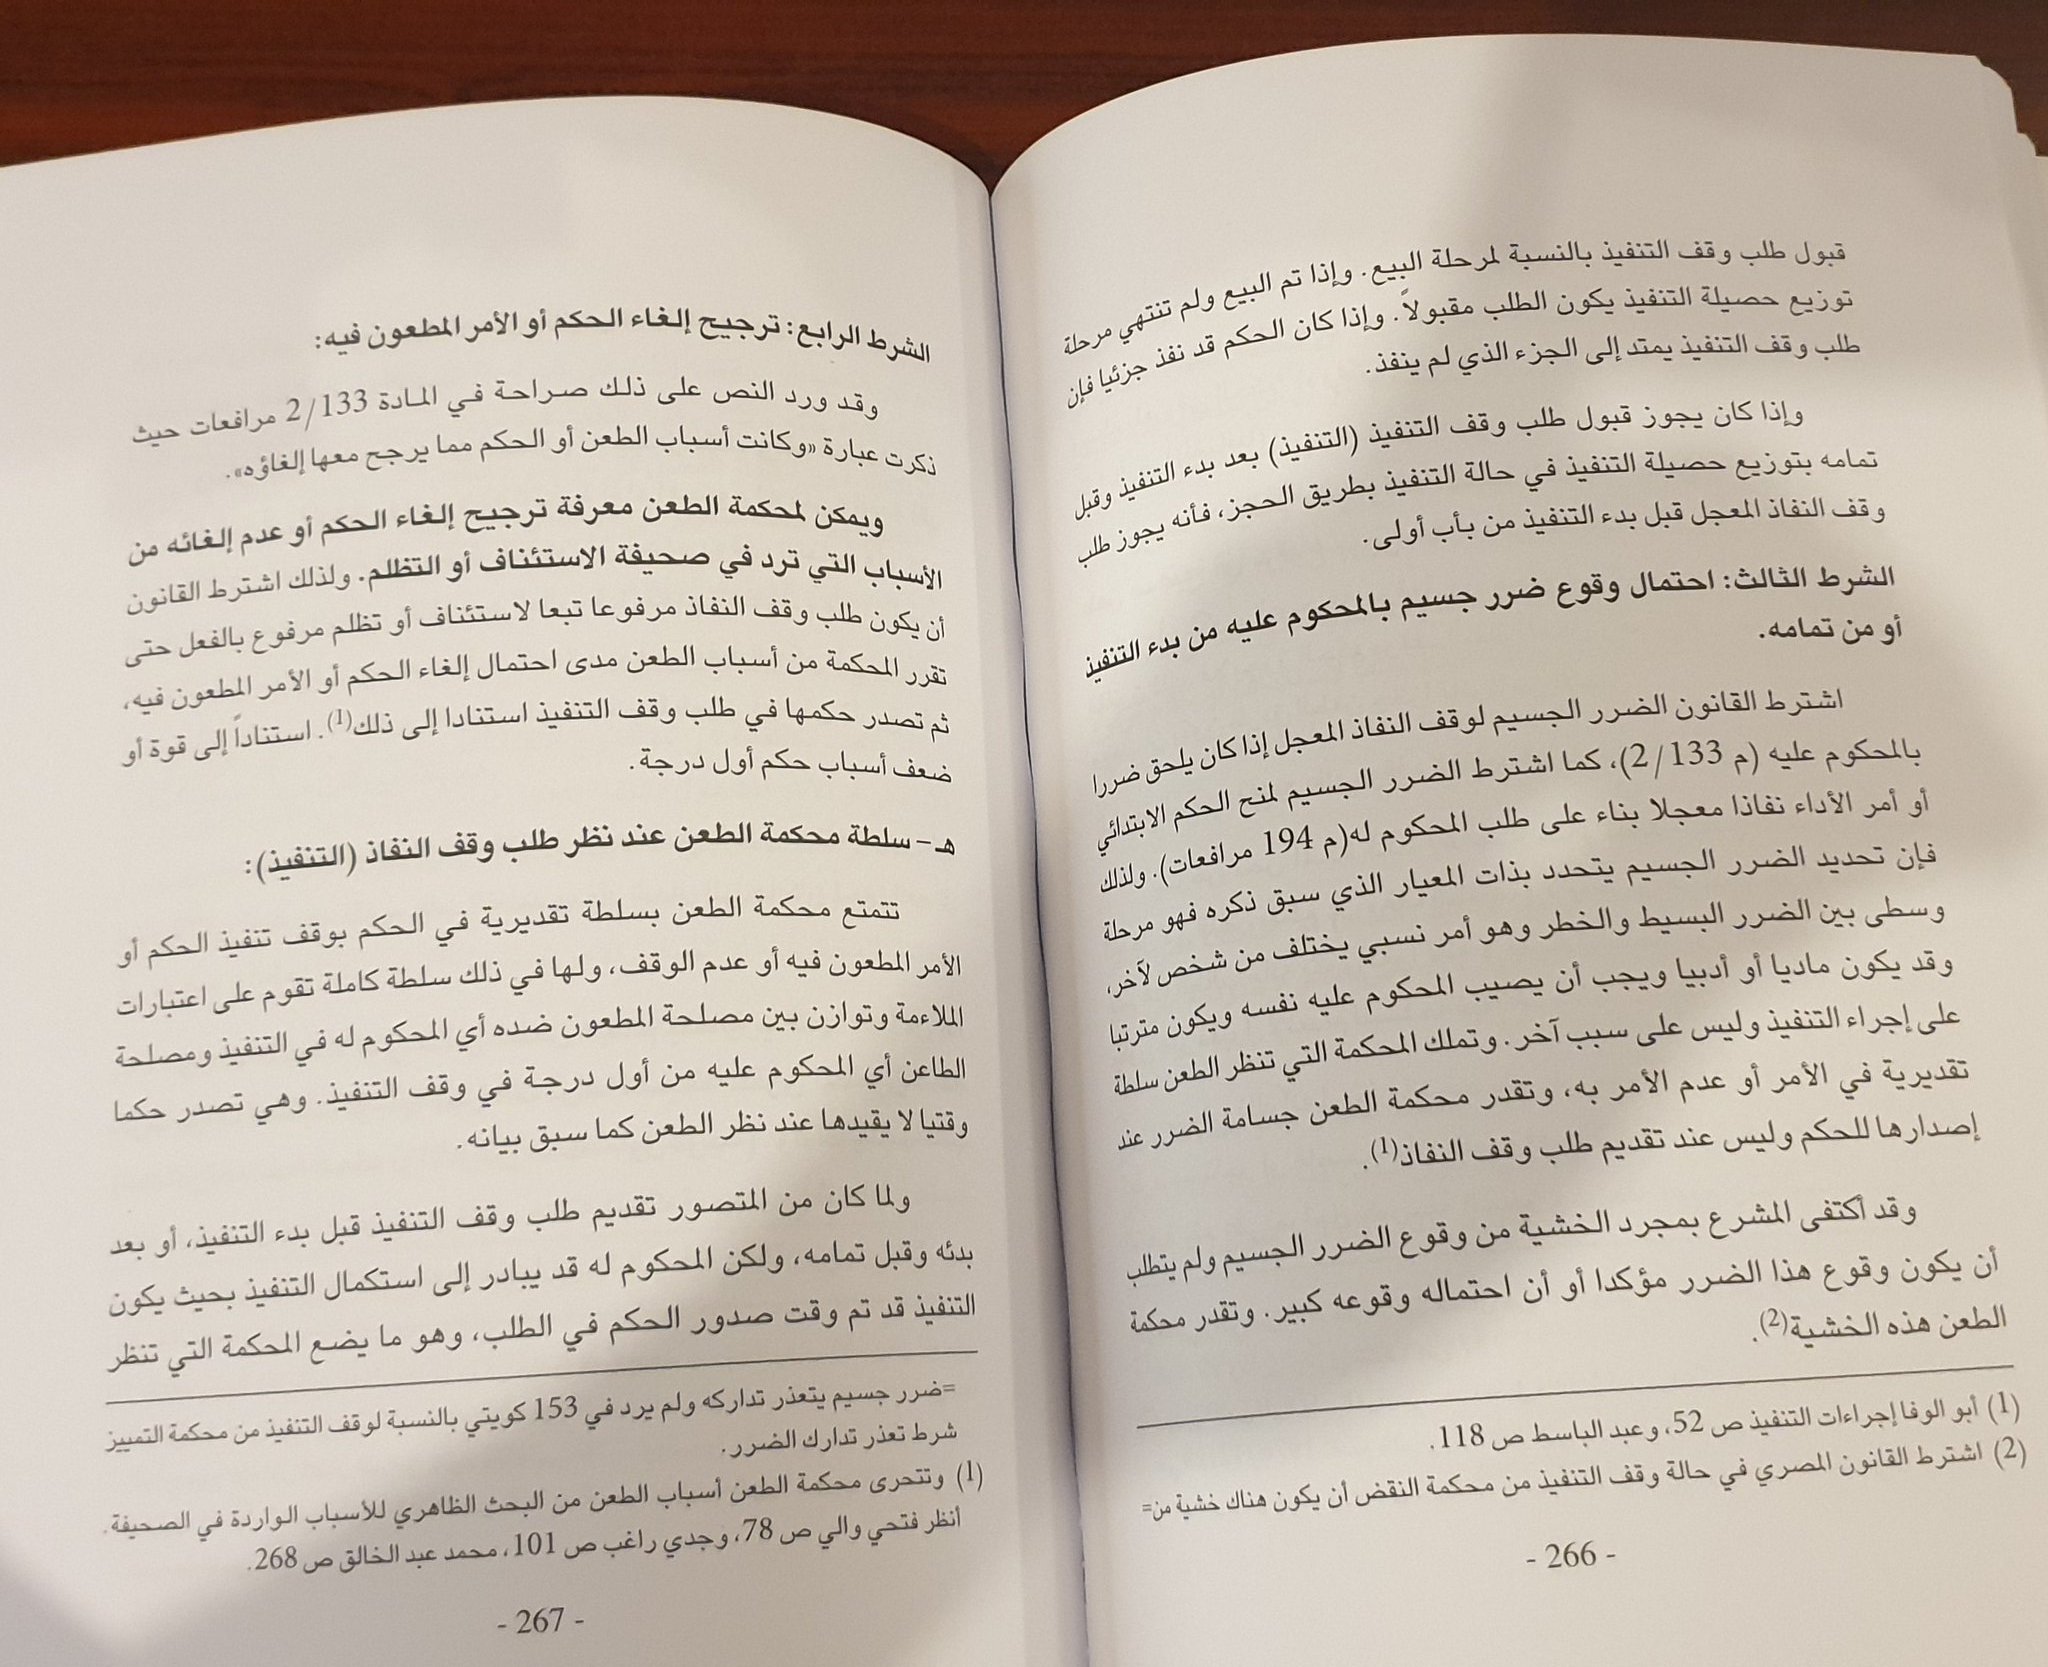 قبول طلب وقف التنفيذ بالنسبة لمرحلة البيع. وإذا تم البيع ولم تنتهي مرحلة
توزيع حصيلة التنفيذ يكون الطلب مقبولاً. وإذا كان الحكم قد نفذ جزئيا فإن
طلب وقف التنفيذ يمتد إلى الجزء الذي لم ينفذ.
وإذا كان يجوز قبول طلب وقف التنفيذ (التنفيذ) بعد بدء التنفيذ وقبل
تمامه بتوزيع حصيلة التنفيذ في حالة التنفيذ بطريق الحجز، فأنه يجوز طلب
وقف النفاذ المعجل قبل بدء التنفيذ من بأب أولى.
الشرط الثالث: احتمال وقوع ضرر جسيم بالمحكوم عليه من بدء التنفيذ
أو من تمامه.
اشترط القانون الضرر الجسيم لوقف النفاذ المعجل إذا كان يلحق ضررا
بالمحكوم عليه (م 2/133)، كما اشترط الضرر الجسيم لمنح الحكم الابتدائي
أو أمر الأداء نفاذا معجلا بناء على طلب المحكوم له(م 194 مرافعات). ولذلك
فإن تحديد الضرر الجسيم يتحدد بذات المعيار الذي سبق ذكره فهو مرحلة
وسطى بين الضرر البسيط والخطر وهو أمر نسبي يختلف من شخص لآخر،
وقد يكون ماديا أو أدبيا ويجب أن يصيب المحكوم عليه نفسه ويكون مترتبا
على إجراء التنفيذ وليس على سبب آخر. وتملك المحكمة التي تنظر الطعن سلطة
تقديرية في الأمر أو عدم الأمر به، وتقدر محكمة الطعن جسامة الضرر عند
إصدارها للحكم وليس عند تقديم طلب وقف النفاذ(1).
وقد أكتفى المشرع بمجرد الخشية من وقوع الضرر الجسيم ولم يتطلب
أن يكون وقوع هذا الضرر مؤكدا أو أن احتماله وقوعه كبير. وتقدر محكمة
الطعن هذه الخشية(2).
(1) أبو الوفا إجراءات التنفيذ ص 52، وعبد الباسط ص 118.
(2) اشترط القانون المصري في حالة وقف التنفيذ من محكمة النقض أن يكون هناك خشية من=
- 266 -
الشرط الرابع: ترجيح إلغاء الحكم أو الأمر المطعون فيه:
وقد ورد النص على ذلك صراحة في المادة 2/133 مرافعات حيث
ذكرت عبارة «وكانت أسباب الطعن أو الحكم مما يرجح معها إلغاؤه».
ويمكن لمحكمة الطعن معرفة ترجيح إلغاء الحكم أو عدم إلغائه من
الأسباب التي ترد في صحيفة الاستئناف أو التظلم. ولذلك اشترط القانون
أن يكون طلب وقف النفاذ مرفوعا تبعا لاستئناف أو تظلم مرفوع بالفعل حتى
تقرر المحكمة من أسباب الطعن مدى احتمال إلغاء الحكم أو الأمر المطعون فيه،
ثم تصدر حكمها في طلب وقف التنفيذ استنادا إلى ذلك(1). استناداً إلى قوة أو
ضعف أسباب حكم أول درجة.
هـ - سلطة محكمة الطعن عند نظر طلب وقف النفاذ (التنفيذ):
تتمتع محكمة الطعن بسلطة تقديرية في الحكم بوقف تنفيذ الحكم أو
الأمر المطعون فيه أو عدم الوقف، ولها في ذلك سلطة كاملة تقوم على اعتبارات
الملاءمة وتوازن بين مصلحة المطعون ضده أي المحكوم له في التنفيذ ومصلحة
الطاعن أي المحكوم عليه من أول درجة في وقف التنفيذ. وهي تصدر حكما
وقتيا لا يقيدها عند نظر الطعن كما سبق بيانه.
ولما كان من المتصور تقديم طلب وقف التنفيذ قبل بدء التنفيذ، أو بعد
بدئه وقبل تمامه، ولكن المحكوم له قد يبادر إلى استكمال التنفيذ بحيث يكون
التنفيذ قد تم وقت صدور الحكم في الطلب، وهو ما يضع المحكمة التي تنظر
=ضرر جسيم يتعذر تداركه ولم يرد في 153 كويتي بالنسبة لوقف التنفيذ من محكمة التمييز
شرط تعذر تدارك الضرر.
(1) وتتحرى محكمة الطعن أسباب الطعن من البحث الظاهري للأسباب الواردة في الصحيفة.
أنظر فتحي والي ص 78، وجدي راغب ص 101، محمد عبد الخالق ص 268.
- 267 -